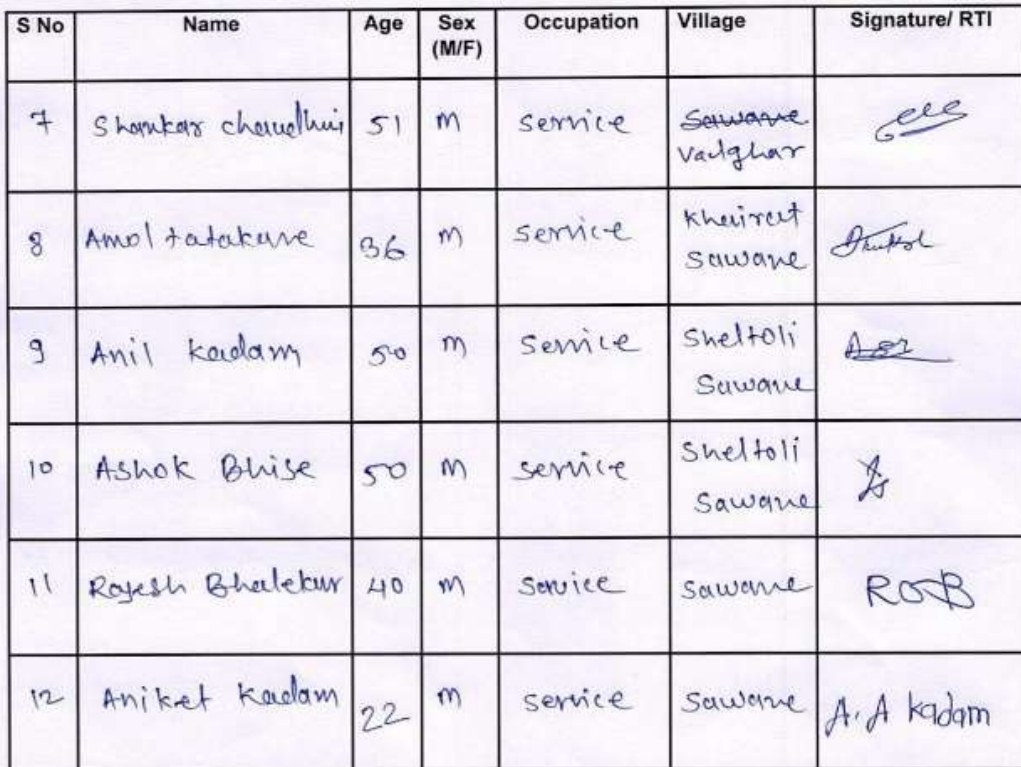 S No Name Age Sex (M/F) Occupation Village Signature/ RTI
7 Shankar 51 M service Sawane
Vadghar
8 Amol tatakare 36 M service Khairat
Sawane
9 Anil Kadam 50 M Service Sheltoli
Sawane
10 Ashok Bhise 50 M service Sheltoli
Sawane
11 Rajesh Bhalekar 40 M Service Sawane ROB
12 Aniket Kadam 22 M service Sawane A. A Kadam